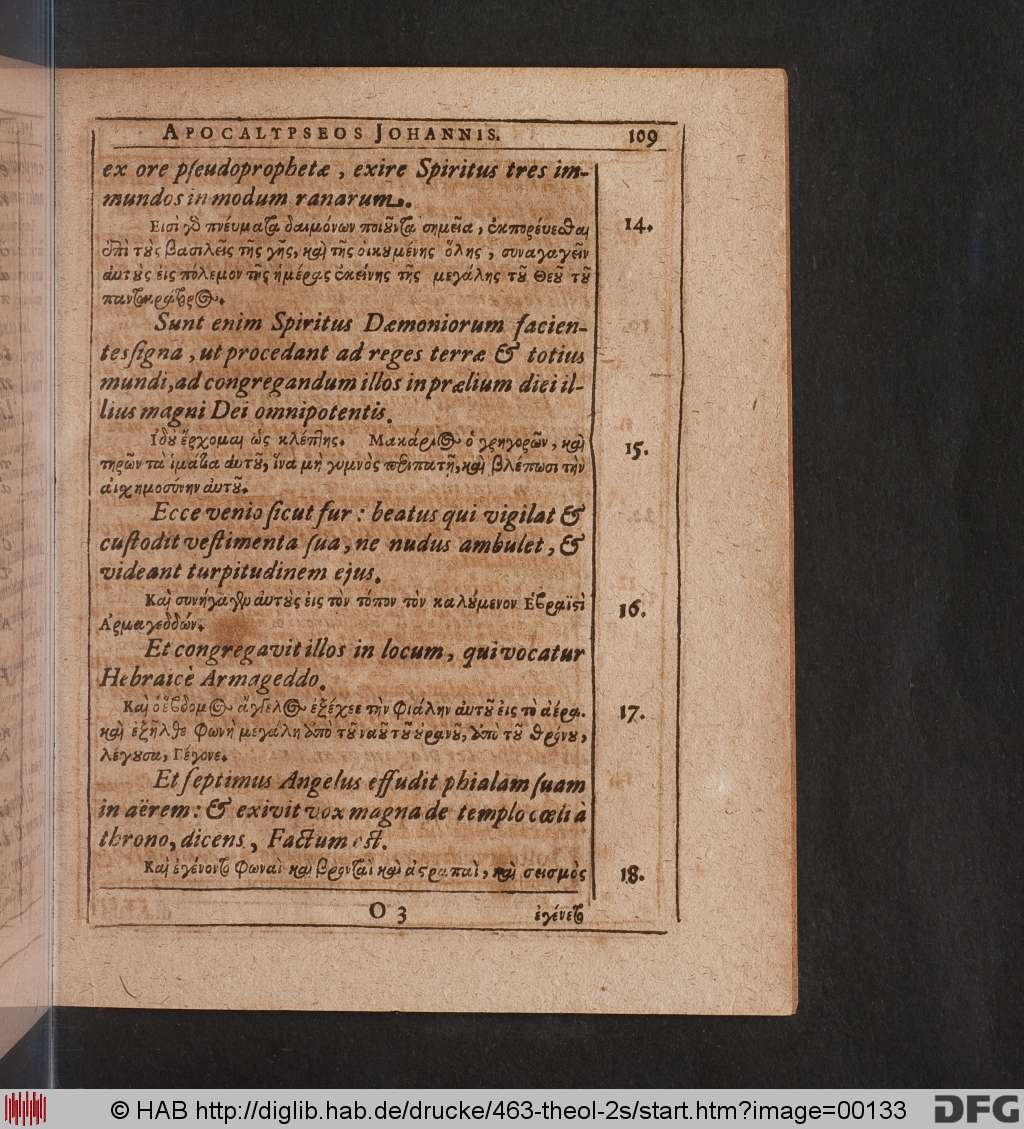 APOCALYPSEOS JOHANNIS. 109
ex ore pſeudoprophetæ, exire Spiritus tres im-
mundos in modum ranarum.
Εισὶ γδ πνέυματα δαιμόνων ποιοῦντα σημεῖα, ἐκπορέυεσθαι 14.
ἐπὶ τοὺς βασιλεῖς τῆς γῆς, καὶ τῆς οἰκυμένης ὅλης, συναγαγεῖν
ἀυτοὺς ἐις πόλεμον τῆς ἡμέρας ἐκείνης τῆς μεγάλης τοῦ Θεοῦ τοῦ
παντοκράτορος.
Sunt enim Spiritus Dæmoniorum facien-
tes ſigna, ut procedant ad reges terræ & totius
mundi, ad congregandum illos in prælium diei il-
lius magni Dei omnipotentis.
Ιδοὺ ἔρχομαι ὡς κλέπτης. Μακάριος ὁ γρηγορῶν, καὶ 15.
τηρῶν τὰ ἱμάτια ἀυτοῦ, ἵνα μὴ γυμνὸς περιπατῇ, καὶ βλέπωσι τὴν
ἀισχημοσύνην ἀυτοῦ.
Ecce venio ſicut fur: beatus qui vigilat &
cuſtodit veſtimenta ſua, ne nudus ambulet, &
videant turpitudinem ejus.
Καὶ συνήγαγεν ἀυτοὺς ἐις τὸν τόπον τὸν καλούμενον Εβραϊστὶ 16.
Αρμαγεδδών.
Et congregavit illos in locum, qui vocatur
Hebraicè Armageddo.
Καὶ ὁ ἕβδομος ἄγγελος ἐξέχεε τὴν φιάλην ἀυτοῦ ἐις τὸ ἀέρα. 17.
καὶ ἐξῆλθε φωνὴ μεγάλη ἀπὸ τοῦ ναοῦ τοῦ ὀυρανοῦ, ἀπὸ τοῦ θρόνου,
λέγουσα, Γέγονε.
Et ſeptimus Angelus effudit phialam ſuam
in aërem: & exivit vox magna de templo cœli à
throno, dicens, Factum eſt.
Καὶ ἐγένοντο φωναὶ καὶ βρονταὶ καὶ ἀστραπαὶ, καὶ σεισμὸς 18.
O 3 ἐγένετο
© HAB http://diglib.hab.de/drucke/463-theol-2s/start.htm?image=00133 DFG